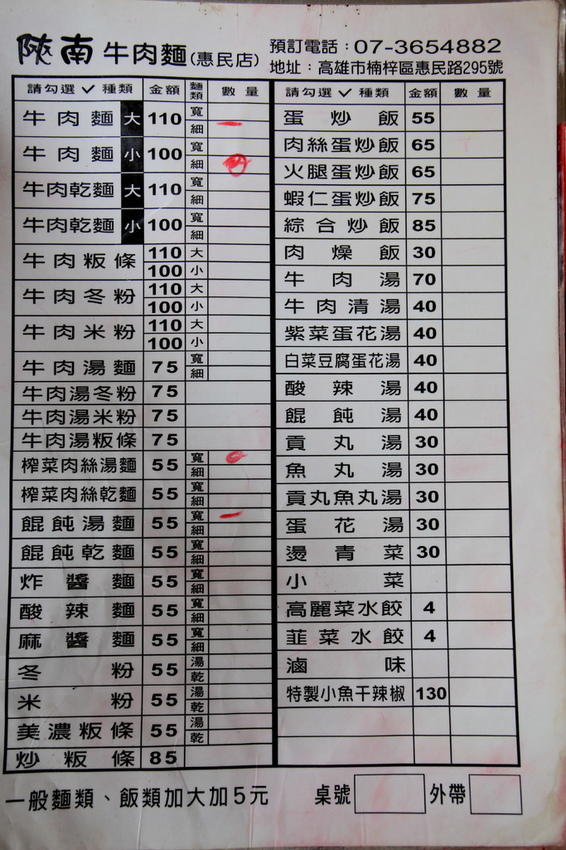 陝南 牛肉麵(惠民店) 預訂電話：07-3654882
地址：高雄市楠梓區惠民路295號
請勾選✓種類 金額 麵類 數量
牛肉麵 大 110 寬 細
牛肉麵 小 100 寬 細
牛肉乾麵 大 110 寬 細
牛肉乾麵 小 100 寬 細
牛肉粄條 110 大 100 小
牛肉冬粉 110 大 100 小
牛肉米粉 110 大 100 小
牛肉湯麵 75 寬 細
牛肉湯冬粉 75
牛肉湯米粉 75
牛肉湯粄條 75
榨菜肉絲湯麵 55 寬 細
榨菜肉絲乾麵 55 寬 細
餛飩湯麵 55 寬 細
餛飩乾麵 55 寬 細
炸醬麵 55 寬 細
酸辣麵 55 寬 細
麻醬麵 55 寬 細
冬粉 55 湯 乾
米粉 55 湯 乾
美濃粄條 55 湯 乾
炒粄條 85
請勾選✓種類 金額 數量
蛋炒飯 55
肉絲蛋炒飯 65
火腿蛋炒飯 65
蝦仁蛋炒飯 75
綜合炒飯 85
肉燥飯 30
牛肉湯 70
牛肉清湯 40
紫菜蛋花湯 40
白菜豆腐蛋花湯 40
酸辣湯 40
餛飩湯 40
貢丸湯 30
魚丸湯 30
貢丸魚丸湯 30
蛋花湯 30
燙青菜 30
小菜
高麗菜水餃 4
韮菜水餃 4
滷味
特製小魚干辣椒 130
一般麵類、飯類加大加5元 桌號 外帶